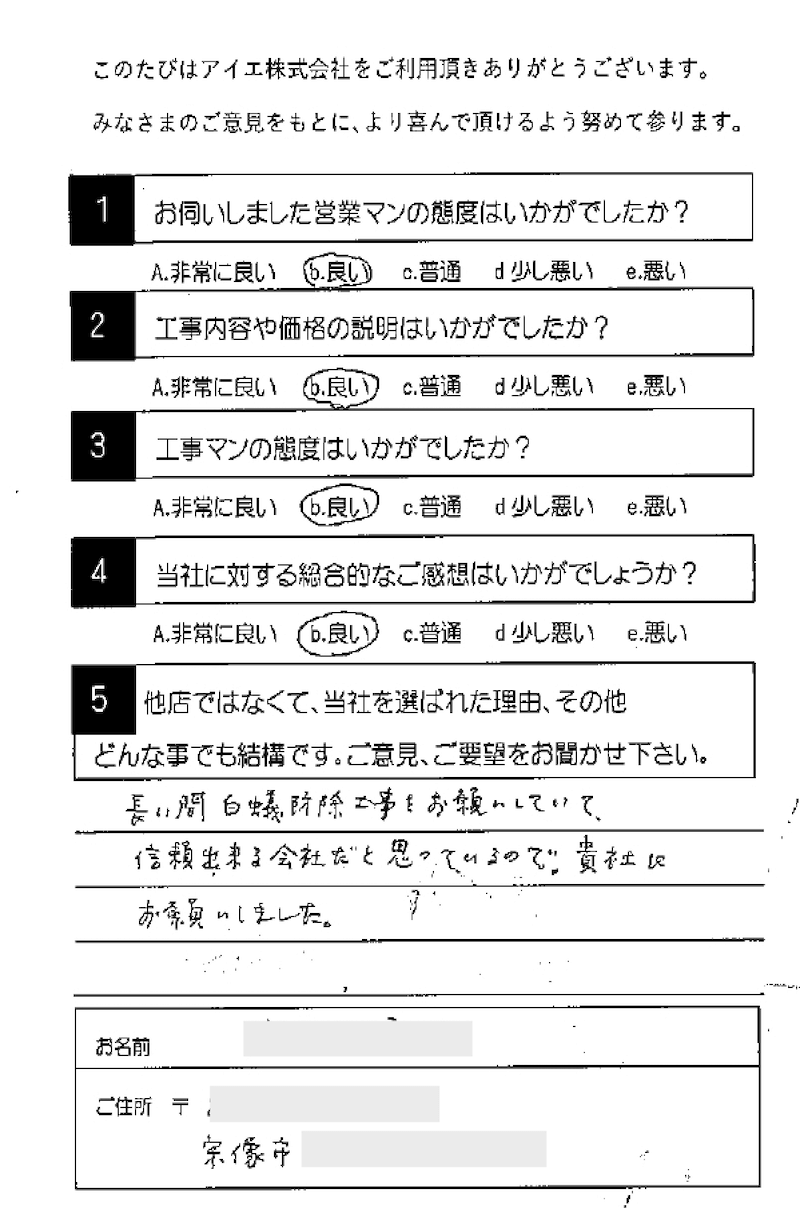 このたびはアイエ株式会社をご利用頂きありがとうございます。
みなさまのご意見をもとに、より喜んで頂けるよう努めて参ります。
1 お伺いしました営業マンの態度はいかがでしたか？
A.非常に良い b.良い c.普通 d 少し悪い e.悪い
2 工事内容や価格の説明はいかがでしたか？
A.非常に良い b.良い c.普通 d 少し悪い e.悪い
3 工事マンの態度はいかがでしたか？
A.非常に良い b.良い c.普通 d 少し悪い e.悪い
4 当社に対する総合的なご感想はいかがでしょうか？
A.非常に良い b.良い c.普通 d 少し悪い e.悪い
5 他店ではなくて、当社を選ばれた理由、その他
どんな事でも結構です。ご意見、ご要望をお聞かせ下さい。
長い間 白蟻防除工事をお願いしていて、
信頼出来る会社だと思っているので、貴社に
お願いしました。
お名前
ご住所 〒
宗像市